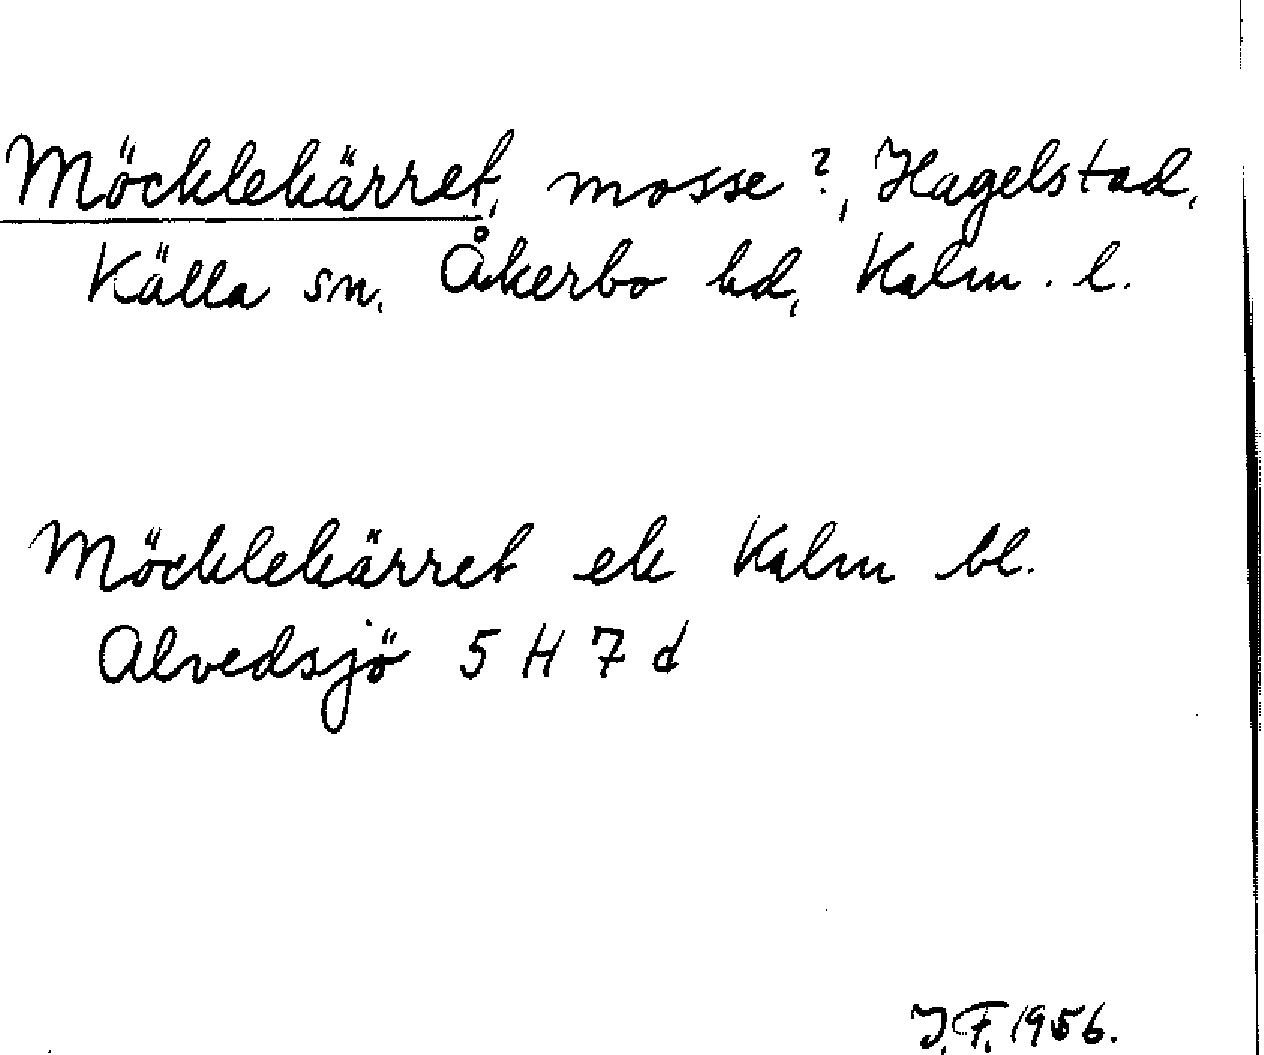 Möcklekärret, mosse?, Hagelstad,
Källa sn, Åkerbo hd, Kalm. l.
Möcklekärret ek Kalm bl.
Alvedsjö 5 H 7 d
J. F. 1956.